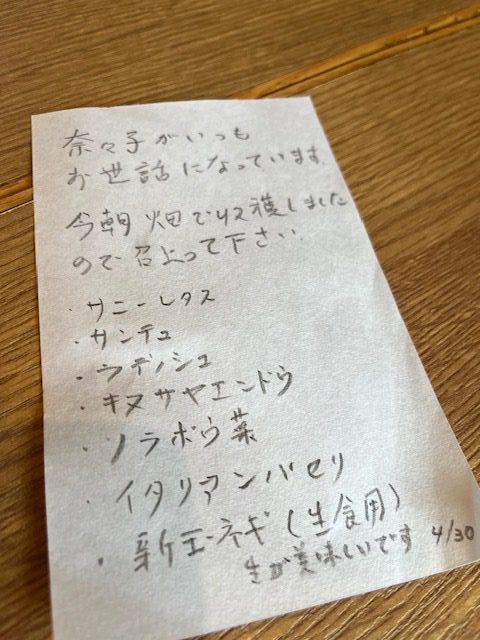 奈々子がいつも
お世話になっています。
今朝 畑で収穫しました
ので召上って下さい。
・サニーレタス
・サンチュ
・ラディシュ
・キヌサヤエンドウ
・ノラボウ菜
・イタリアンパセリ
・新玉ネギ(生食用)
生が美味しいです 4/30